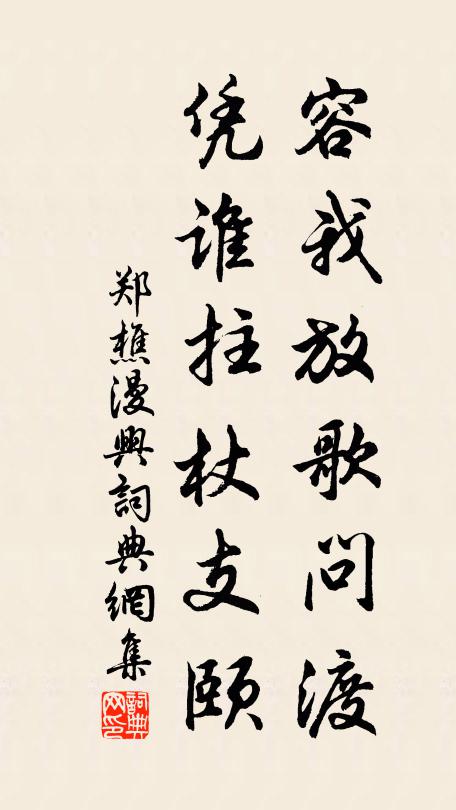 容我放歌问渡
凭谁拄杖支颐
郑樵漫興詞典網集
詞典网印